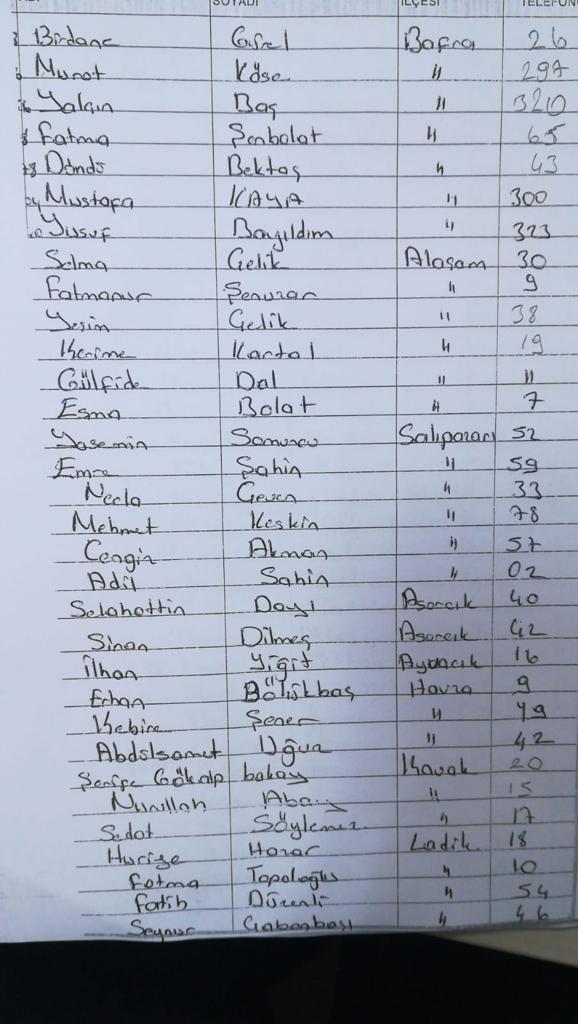 SOYADI İLÇESİ TELEFON
Birdane Güsel Bafra 26
Murat Köse " 297
Yalçın Baş " 320
Fatma Şenbolat " 65
Döndü Bektaş " 43
Mustafa KAYA " 300
Yusuf Bayıldım " 323
Selma Çelik Alaçam 30
Fatmanur Şenuzan " 9
Yeşim Çelik " 38
Kerime Kartal " 19
Gülfide Dal " "
Esma Bolat " 7
Yasemin Somuncu Salıpazarı 52
Emre Şahin " 59
Necla Geven " 33
Mehmet Keskin " 78
Cengiz Akman " 57
Adil Şahin " 02
Selahattin Dayı Asarcık 40
Sinan Dilmeç Asarcık 42
İlhan Yiğit Ayvacık 16
Erhan Bölükbaş Havza 9
Kebire Şener " 49
Abdülsamet Uğur " 42
Şerife Gökalp bakay Kavak 20
Nurullah Abay " 15
Sedat Söylemez " 17
Hurize Hazar Ladik 18
Fatma Topaloğlu " 10
Fatih Düzenli " 54
Seynur Çabaşbaşı " 46